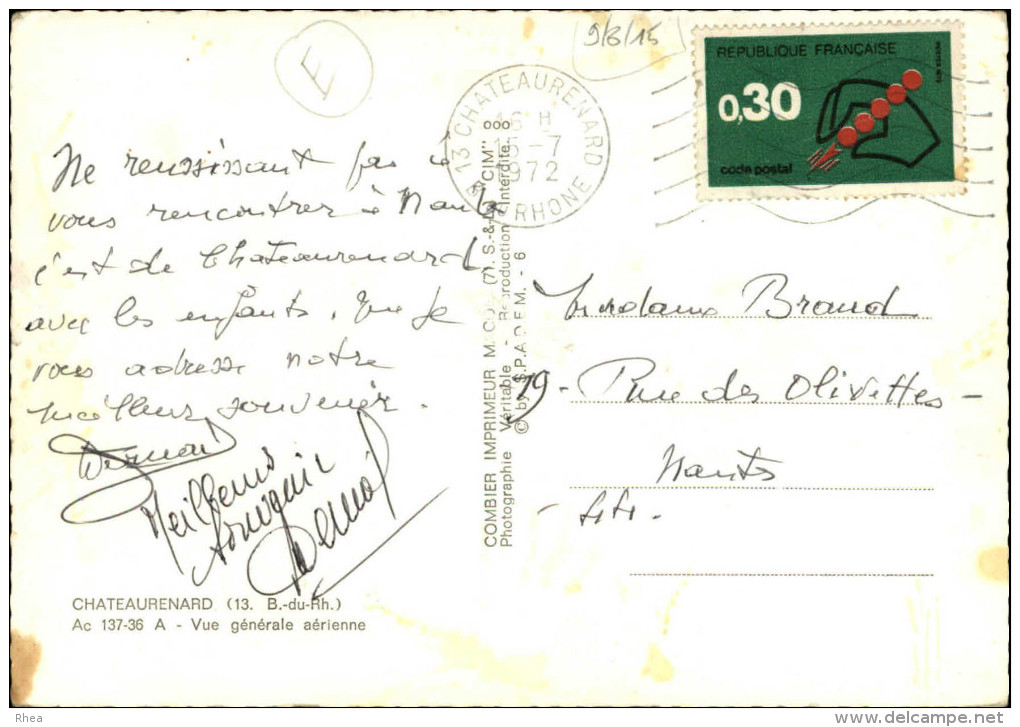 E
9/8/15
REPUBLIQUE FRANÇAISE
0,30
code postal
13 CHATEAURENARD
16 H
-7
1972
RHONE
Ne reussissant pas à
vous rencontrer à Nantes
c'est de Chateaurenard
avec les enfants, que je
vous adresse notre
meilleur souvenir.
Meilleurs
souvenir
COMBIER IMPRIMEUR MACON (71, S.-&-L. "CIM"
Photographie Véritable - Reproduction Interdite
© by S.P.A.D.E.M. - 6
Braud
19 - Rue des Olivettes -
Nantes
- 44 -
CHATEAURENARD (13. B.-du-Rh.)
Ac 137-36 A - Vue générale aérienne
Rhea
www.delcampe.net